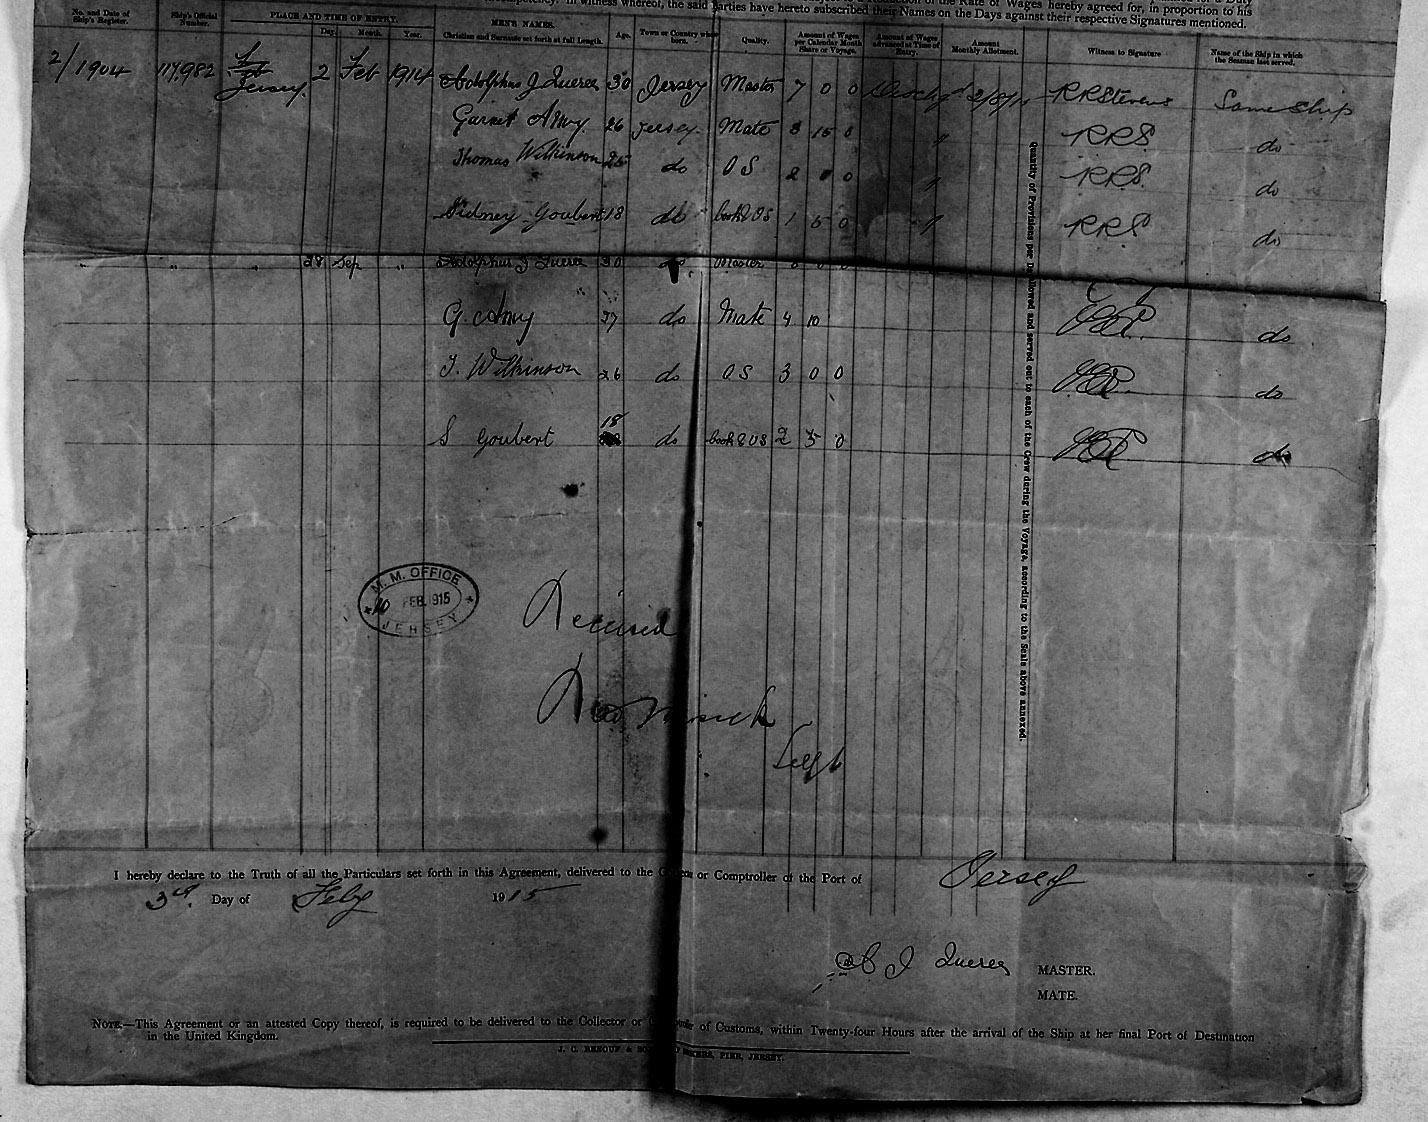 wherof, the said parties have hereto subscribed their Names on the Days against their respective Signatures mentioned.
No. and Date of Ship's Register. Ship's Official Number. PLACE AND TIME OF ENTRY. Day. Month. Year. MEN'S NAMES. Christian and Surname set forth at full Length. Age. Town or Country where born. Quality. Amount of Wages per Calendar Month Share or Voyage. Amount of Wages advanced at Time of Entry. Amount Monthly Allotment. Witness to Signature Name of the Ship in which the Seaman last served.
2/1904 117,982 Jersey. 2 Feb 1914 Adolphus J Queree 30 Jersey Master 7 0 0 RRStevens Same Ship
Garnet Amy 26 Jersey Mate 3 15 0 " RRS do
Thomas Wilkinson 25 do OS 2 0 0 " RRS do
Sidney Goubert 18 do Cook & OS 1 5 0 " RRS do
" " " 28 Sep " Adolphus J Queree 30 do Master
G. Amy 27 do Mate 4 10 do
T. Wilkinson 26 do OS 3 0 0 do
S Goubert 18 do Cook & OS 2 5 0 do
Quantity of Provisions per Day allowed and served out to each of the Crew during the Voyage, according to the Scale above annexed.
M. M. OFFICE
10 FEB. 1915
JERSEY
Received
I hereby declare to the Truth of all the Particulars set forth in this Agreement, delivered to the or Comptroller of the Port of Jersey
3rd Day of Feby 1915
J Queree MASTER.
MATE.
NOTE.—This Agreement or an attested Copy thereof, is required to be delivered to the Collector or of Customs, within Twenty-four Hours after the arrival of the Ship at her final Port of Destination
in the United Kingdom.
J. C. RENOUF & PIER, JERSEY.